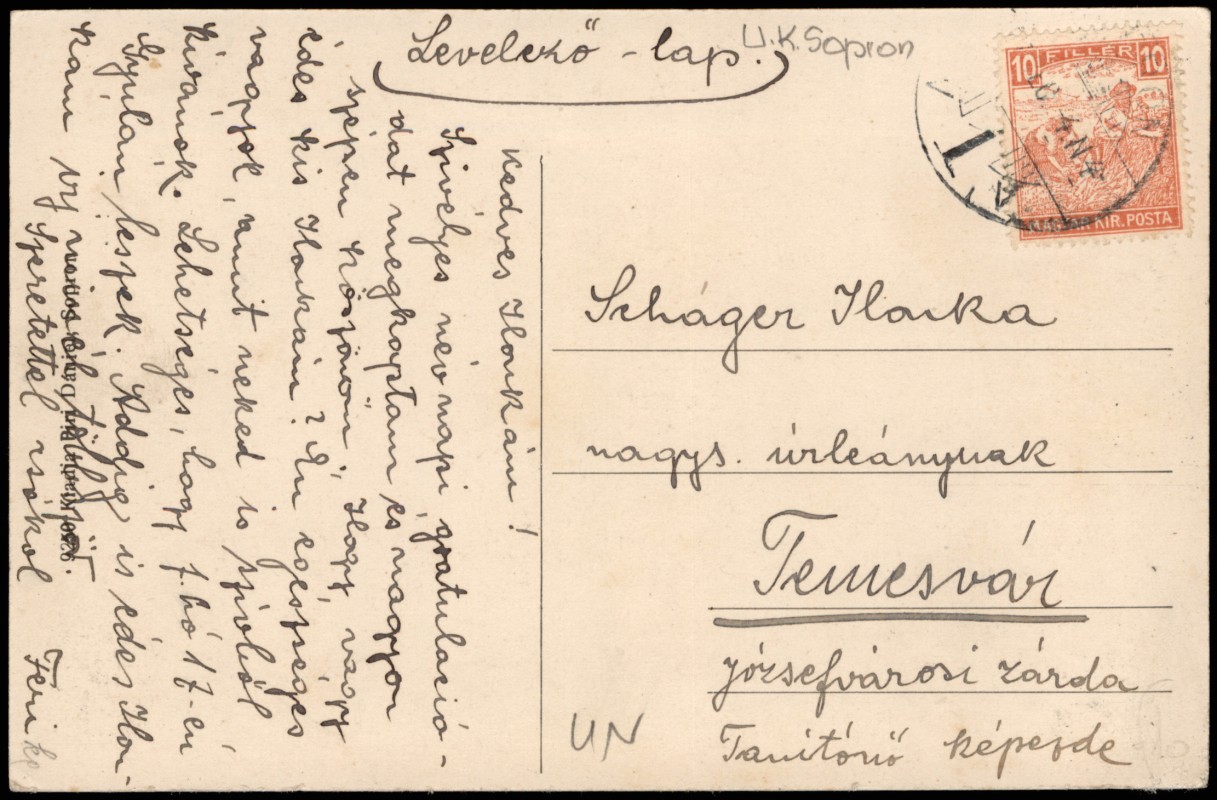 Levelező-lap.
U.K. Sopron
10 FILLÉR 10
MAGYAR KIR. POSTA
Kedves Ilonkám!
Szivélyes névnapi gratuláció-
dat megkaptam és nagyon
szépen köszönöm, Hogy vagy
édes kis Ilonkám? Én egészséges
vagyok, amit neked is szivből
kivánok. Lehetséges, hogy f. hó 17-én
Gyulán leszek. Addig is édes Ilon-
kám írj minél többször.
Szeretettel csókol Feri
Scháger Ilonka
nagys. úrleánynak
Temesvár
józsefvárosi zárda
Tanítónő képezde
UN